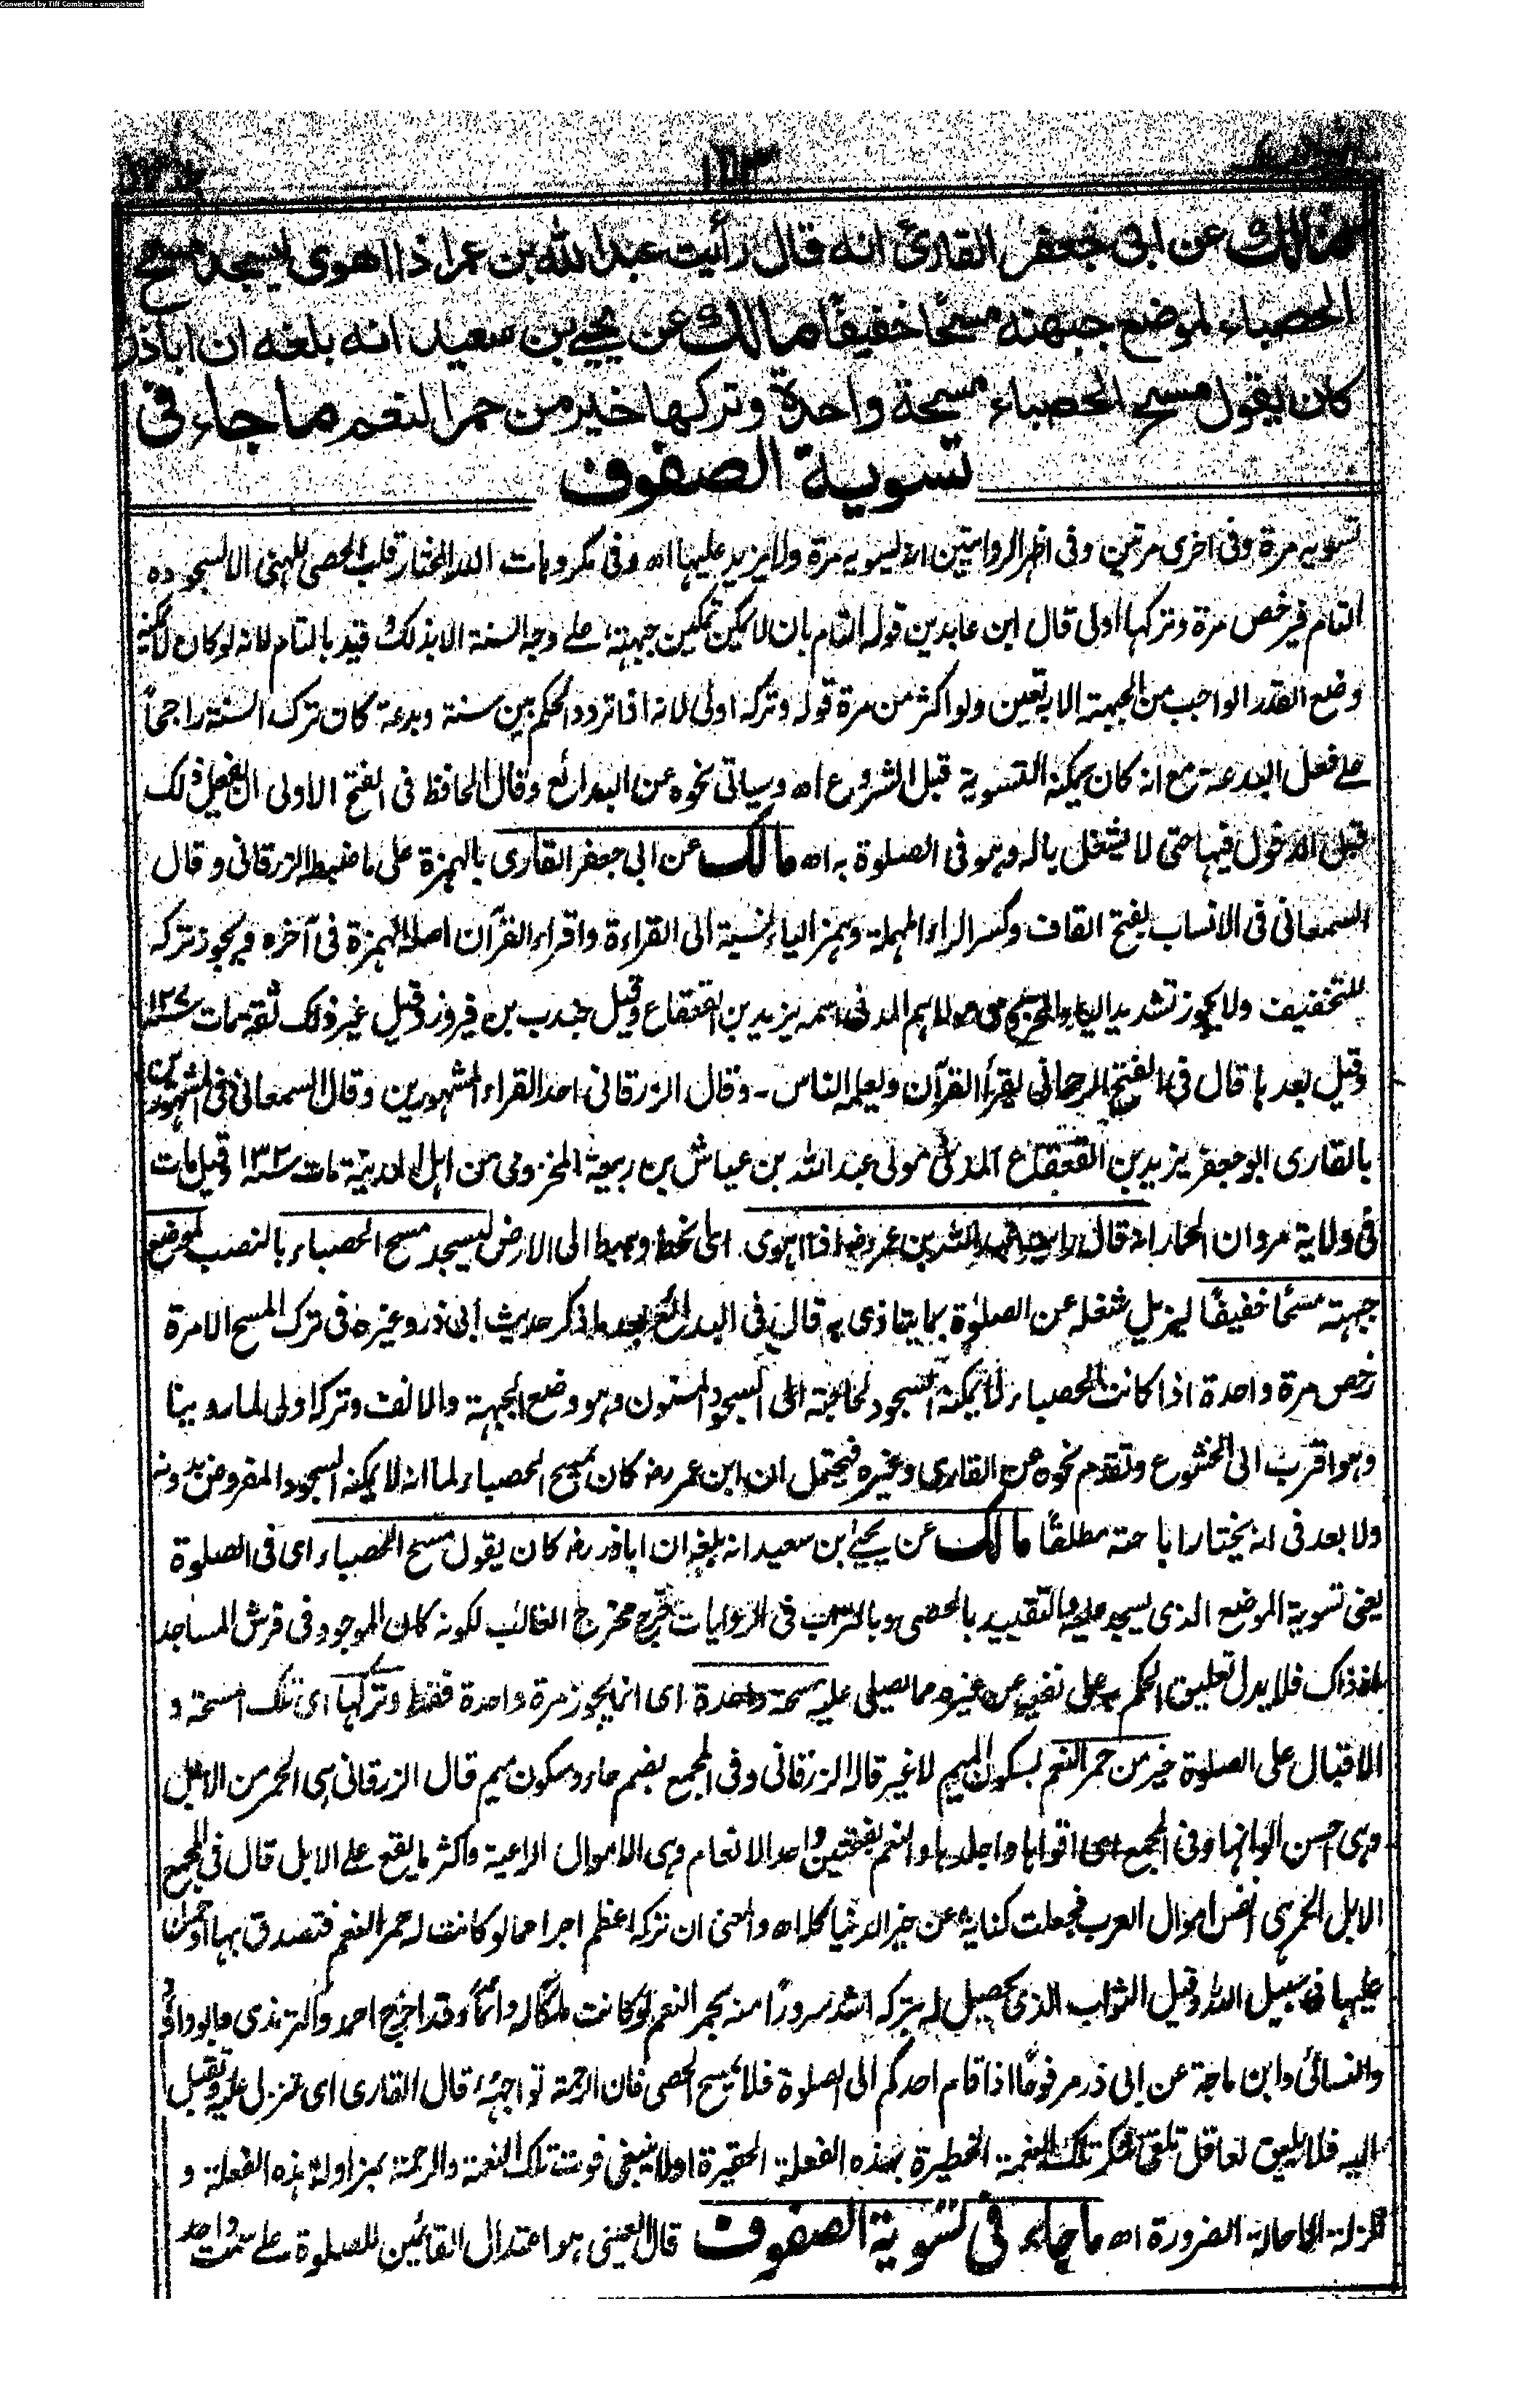 Converted by Tiff Combine - unregistered
مالك عن ابى جعفر القارئ انه قال رأيت عبد الله بن عمر اذا اهوى ليسجد مسح
الحصباء لموضع جبهته مسحًا خفيفًا مالك عن يحيى بن سعيد انه بلغه ان اباذر
كان يقول مسح الحصباء مسحة واحدة وتركها خير من حمر النعم ما جاء فى
تسوية الصفوف
تسويه مرة وفى اخرى مرتين وفى اظهر الروايتين انه يسويه مرة ولا يزيد عليها اه وفى مكروهات الدر المختار قلب الحصى للنهى الا لسجوده
التام فيرخص مرة وتركها اولى قال ابن عابدين قوله التام بان لا يمكن تمكين جبهته على وجه السنة الا بذلك قيد بالتام لانه لو كان لا يمكنه
وضع القدر الواجب من الجبهة الا به تعين ولو اكثر من مرة قوله وتركه اولى لانه اذا تردد الحكم بين سنة وبدعة كان ترك السنة راجحًا
على فعل البدعة مع انه كان يمكنه التسوية قبل الشروع اه وسياتى نحوه عن البدائع وقال الحافظ فى الفتح الاولى ان يفعل ذلك
قبل الدخول فيها حتى لا يشتغل باله وهو فى الصلوة به اه مالك عن ابى جعفر القارى بالهمزة على ما ضبطه الزرقانى وقال
السمعانى فى الانساب بفتح القاف وكسر الراء المهملة وهمز الياء نسبة الى القراءة واقراء القرآن اصله الهمزة فى آخره ويجوز تركه
للتخفيف ولا يجوز تشديد الياء المخزومى مولاهم المدنى اسمه يزيد بن القعقاع وقيل جندب بن فيروز وقيل غير ذلك ثقة مات سنة ١٢٧
وقيل بعدها قال فى الفتح الرحمانى يقرأ القرآن ويعلمه الناس - وقال الزرقانى احد القراء المشهورين وقال السمعانى فى المشهورين
بالقارى ابو جعفر يزيد بن القعقاع المدنى مولى عبد الله بن عياش بن ربيعة المخزومى من اهل المدينة مات سنة ١٣٢ وقيل مات
فى ولاية مروان الحمار انه قال رأيت عبد الله بن عمر رض اذا اهوى اى انحط وهبط الى الارض ليسجد مسح الحصباء بالنصب لموضع
جبهته مسحًا خفيفًا ليزيل شغله عن الصلوٰة بما يتاذى به قال فى البدائع بعد ما ذكر حديث ابى ذر وغيره فى ترك المسح الا مرة
رخص مرة واحدة اذا كانت الحصباء لا يمكنه السجود لحاجته الى السجود المسنون وهو وضع الجبهة والانف وتركه اولى لما روينا
وهو اقرب الى الخشوع وتقدم نحوه عن القارى وغيره فيحتمل ان ابن عمر رض كان يمسح الحصباء لما انه لا يمكنه السجود المفروض بدونه
ولا بعد فى انه يختار اباحته مطلقًا مالك عن يحيىٰ بن سعيد انه بلغه ان اباذر رض كان يقول مسح الحصباء اى فى الصلوة
يعنى تسوية الموضع الذى يسجد عليه والتقييد بالحصى وبالتراب فى الروايات خرج مخرج الغالب لكونه كان الموجود فى فرش المساجد
اذ ذاك فلا يدل تعليق الحكم به على نفيه عن غيره مما يصلى عليه مسحة واحدة اى انما يجوز مرة واحدة فقط وتركها اى تلك المسحة و
الاقبال على الصلوة خير من حمر النعم بسكون الميم لا غير قاله الزرقانى وفى المجمع بضم حاء وسكون ميم قال الزرقانى هى الحمر من الابل
وهى احسن الوانها وفى المجمع اى اقواها واجلدها والنعم بفتحتين واحد الانعام وهى الاموال الراعية واكثر ما يقع على الابل قال فى المجمع
الابل الحمر هى انفس اموال العرب فجعلت كناية عن خير الدنيا كله اه والمعنى ان تركه اعظم اجرا مما لو كانت له حمر النعم فتصدق بها او حمل
عليها فى سبيل الله وقيل الثواب الذى يحصل له بتركه اشد سرورًا منه بحمر النعم لو كانت ملكًا له دائمًا وقد اخرج احمد والترمذى وابو داؤد
والنسائى وابن ماجة عن ابى ذر مرفوعًا اذا قام احدكم الى الصلوة فلا يمسح الحصى فان الرحمة تواجهه قال القارى اى تنزل عليه وتقبل
اليه فلا يليق لعاقل تلقى شكر تلك النعمة الخطيرة بهذه الفعلة الحقيرة او لا ينبغى فوت تلك النعمة والرحمة بمزاولة هذه الفعلة و
الزلة الا حالة الضرورة اه ما جاء فى تسوية الصفوف قال العينى هو اعتدال القائمين للصلوة على سمت واحد